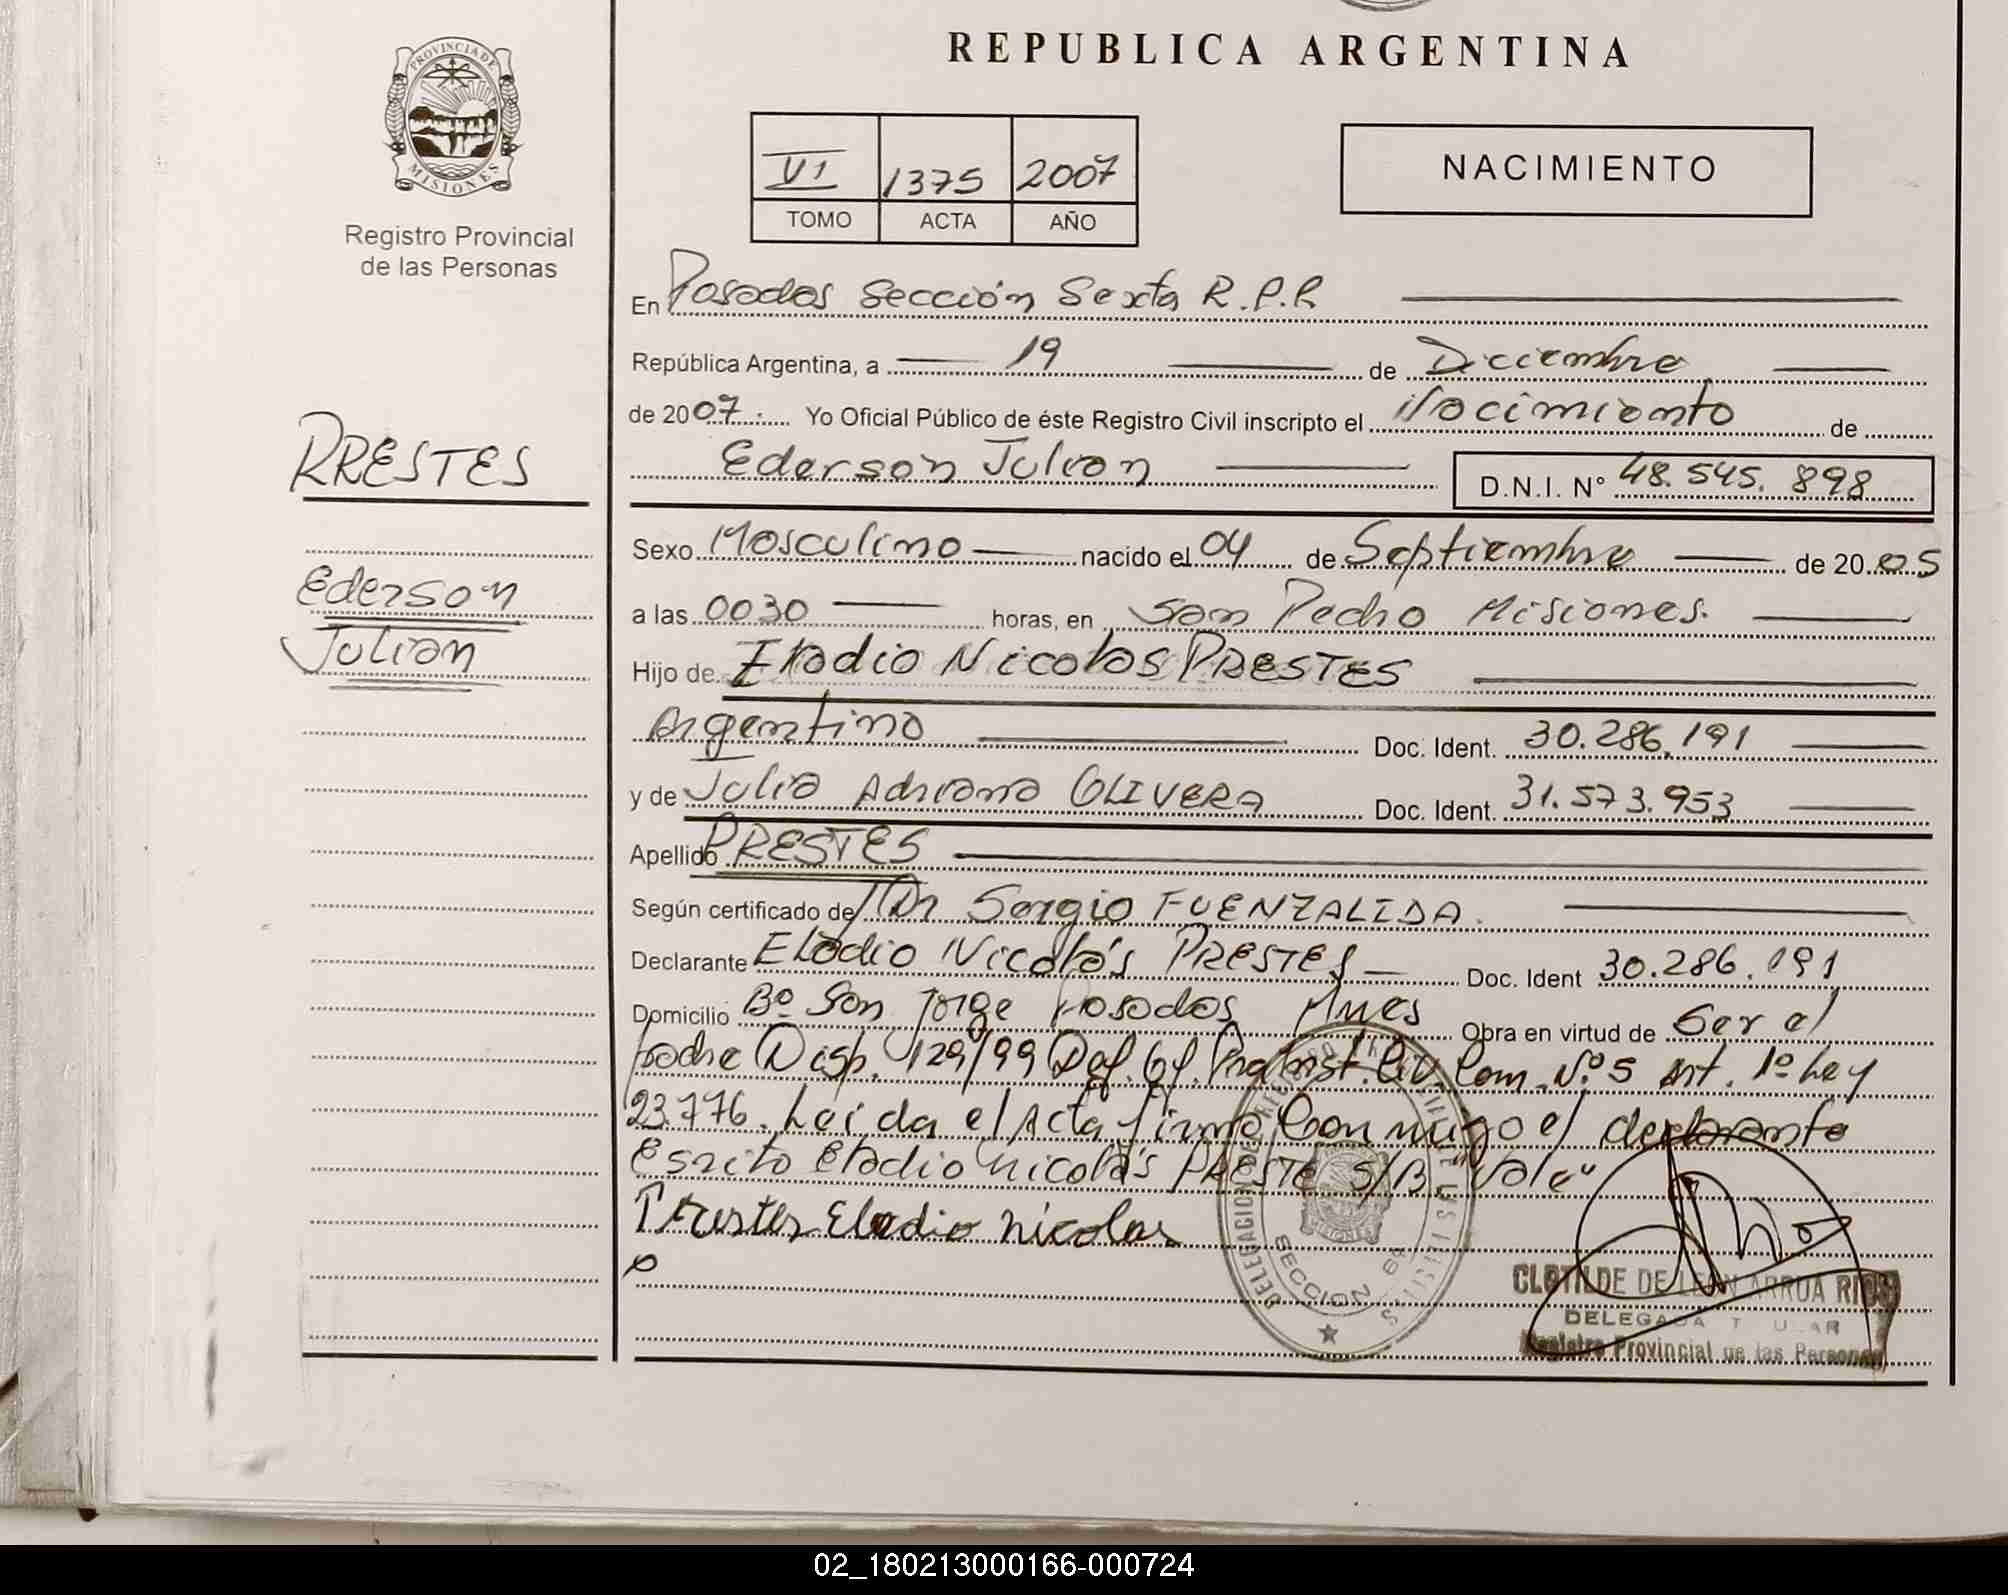 REPUBLICA ARGENTINA
PROVINCIA DE MISIONES
Registro Provincial
de las Personas
VI 1375 2007
TOMO ACTA AÑO
NACIMIENTO
En Posadas Sección Sexta R.P.P.
República Argentina, a 19 de Diciembre
de 2007. Yo Oficial Público de éste Registro Civil inscripto el Nacimiento de
Ederson Julian D.N.I. Nº 48.545.898
PRESTES
Ederson
Julian
Sexo Masculino nacido el 04 de Septiembre de 2005
a las 0030 horas, en San Pedro Misiones.
Hijo de Eladio Nicolas PRESTES
Argentino Doc. Ident. 30.286.191
y de Julia Adriana OLIVERA Doc. Ident. 31.573.953
Apellido PRESTES
Según certificado de Dr Sergio FUENZALIDA.
Declarante Eladio Nicolás PRESTES Doc. Ident 30.286.191
Domicilio Bº San Jorge Posadas Mnes Obra en virtud de Ser el
padre Disp. 129/99 Def. Of. Inst. Civ. Com. Nº 5 Art. 1º Ley
23.776. Leida el Acta firma Conmigo el declarante
Escrito Eladio Nicolás PRESTE S/B "Vale"
Prestes Eladio Nicolas
SECCION 6ª
CLOTILDE DE LEON ARRUA RIOS
DELEGADA TITULAR
Registro Provincial de las Personas
02_180213000166-000724